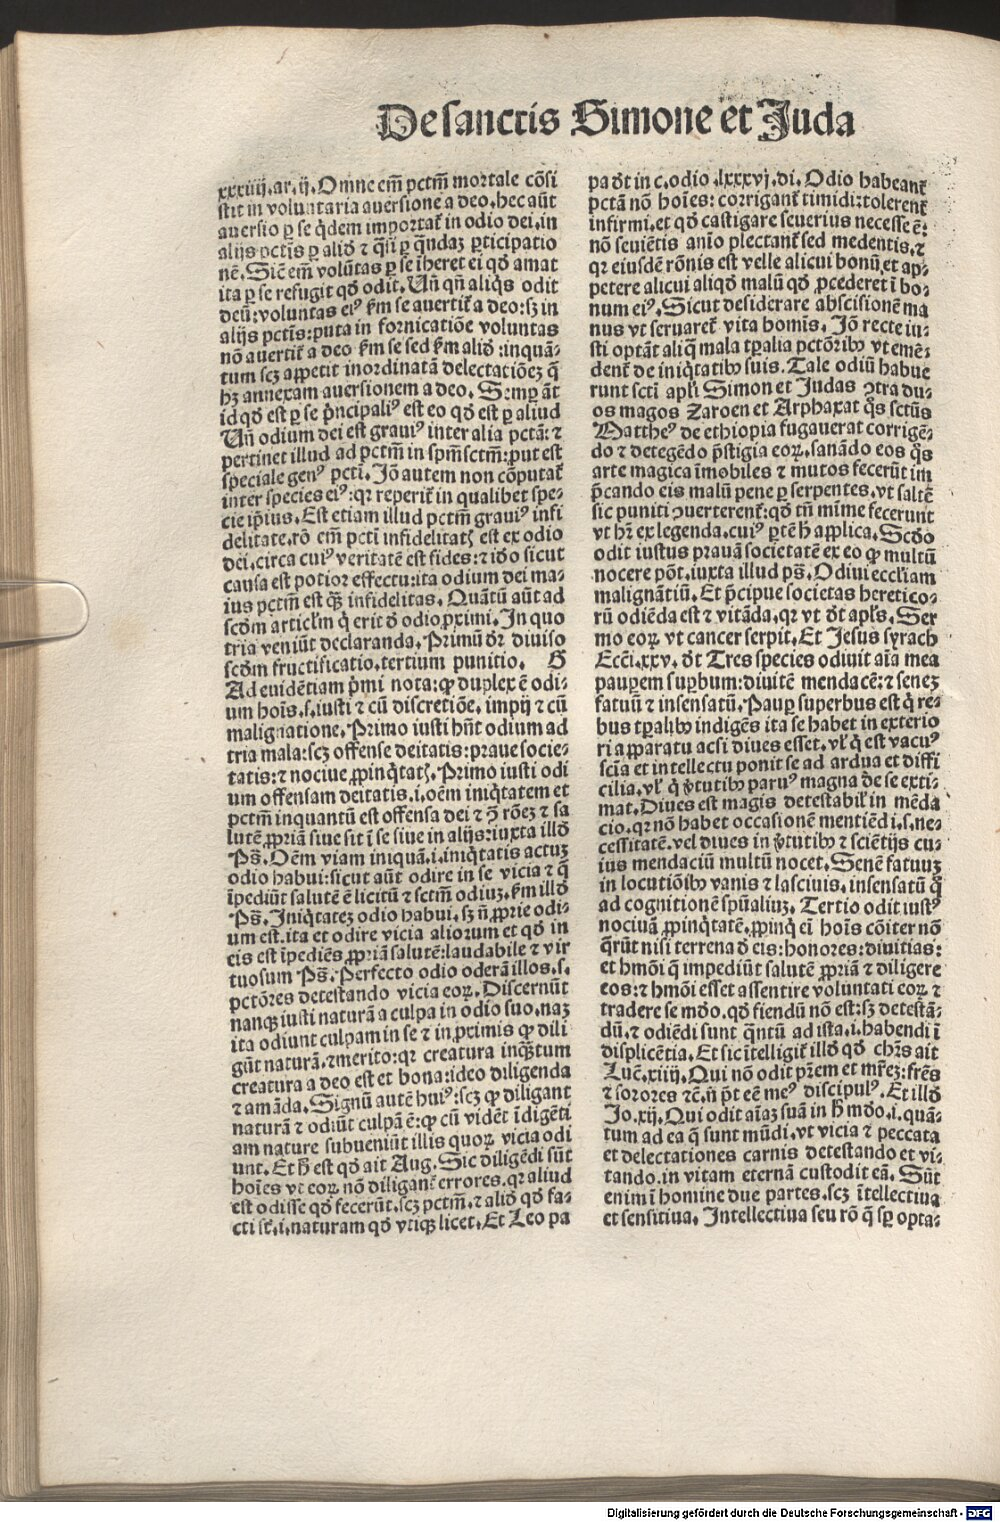 De sanctis Simone et Juda
xxxiiij.ar.ij. Omne em̄ pctm̄ mortale cōsi
stit in voluntaria auersione a deo, hec aūt
auersio ꝑ se q̇dem importat̄ in odio dei, in
alijs pctīs ꝑ aliđ ⁊ q̄si ꝑ q̄ndaꝫ ꝑticipatio
nē. Sic̄ em̄ volūtas ꝑ se īheret ei qđ amat
ita ꝑ se refugit qđ odit. Uñ qn̄ aliq̇s odit
deū: voluntas ei⁹ ẜm se auertit̄ a deo: sꝫ in
alijs pctīs: puta in fornicatiōe voluntas
nō auertit̄ a deo ẜm se sed ẜm aliđ: inquā⸗
tum scꝫ appetit inordinatā delectatiōeꝫ q̄
hꝫ annexam auersionem a deo. Semꝑ āt
id qđ est ꝑ se p̄ncipali⁹ est eo qđ est ꝑ aliud
Uñ odium dei est graui⁹ inter alia pctā: ⁊
pertinet illud ad pctm̄ in spm̄sctm̄: put est
speciale gen⁹ pcti. Jō autem non cōputat̄
inter species ei⁹: qꝛ reperit̄ in qualibet spe⸗
cie ip̄ius. Est etiam illud pctm̄ graui⁹ infi
delitate. rō em̄ pcti infidelitatꝭ est ex odio
dei, circa cui⁹ veritatē est fides: ⁊ iđo sicut
causa est potior effectu: ita odium dei ma⸗
ius pctm̄ est qꝫ infidelitas. Quātū aūt ad
scđm articl̄m q̇ erit đ odio ꝓximi. In quo
tria veniūt declaranda. Primū đr diuiso
scđm fructificatio, tertium punitio. B
Ad euidētiam p̄mi nota: ꝙ duplex ē odi⸗
um hoīs .s. iusti ⁊ cū discretiōe, impij ⁊ cū
malignatione. Primo iusti hn̄t odium ad
tria mala: scꝫ offense deitatis: praue socie⸗
tatis: ⁊ nociue ꝓpinq̇tatꝭ. Primo iusti odi
um offensam deitatis .i. oēm iniq̇tatem et
pctm̄ inquantū est offensa dei ⁊ ꝯ̄ rōeꝫ ⁊ sa
lutē ꝓpriā siue sit ī se siue in alijs: iuxta illđ
Ps̄. Oēm viam iniquā .i. iniq̇tatis actuꝫ
odio habui: sicut aūt odire in se vicia ⁊ q̄
īpediūt salutē ē licitū ⁊ sctm̄ odiuꝫ, ẜm illđ
Ps̄. Iniq̇tateꝫ odio habui. sꝫ n̄ ꝓprie odi⸗
um est. ita et odire vicia aliorum et qđ in
eis est īpediēs ꝓpriā salutē: laudabile ⁊ vir
tuosum Ps̄. Perfecto odio oderā illos .s.
pctōres detestando vicia eoꝝ. Discernūt
nanqꝫ iusti naturā a culpa in odio suo, naꝫ
ita odiunt culpam in se ⁊ in ꝓximis ꝙ dili
gūt naturā, ⁊ merito: qꝛ creatura inqꝫtum
creatura a deo est et bona: ideo diligenda
⁊ amāda. Signū autē hui⁹: scꝫ ꝙ diligant
naturā ⁊ odiūt culpā ē: ꝙ cū vidēt īdigēti
am nature subueniūt illis quoꝝ vicia odi
unt. Et h̄ est qđ ait Aug. Sic diligēdi sūt
hoīes vt eoꝝ nō diligant̄ errores. qꝛ aliud
est odisse qđ fecerūt. scꝫ pctm̄. ⁊ aliđ qđ fa⸗
cti st̄ .i. naturam qđ vtiqꝫ licet. Et Leo pa
pa đt in c. odio .lxxxvj. di. Odio habeant̄
pctā nō hoīes: corrigant̄ timidi: tolerent̄
infirmi. et qđ castigare seuerius necesse ē:
nō seuiētis aīo plectant̄ sed medentis. ⁊
qꝛ eiusdē rōnis est velle alicui bonū et ap⸗
petere alicui aliqđ malū qđ ꝓcederet ī bo⸗
num ei⁹. Sicut desiderare abscisionē ma
nus vt seruaret̄ vita hominis. Jō recte iu⸗
sti optāt aliq̄ mala tꝑalia pctōribꝰ vt emē⸗
dent̄ de iniq̇tatibꝰ suis. Tale odiū habue
runt scti apl̄i Simon et Judas ꝯtra du⸗
os magos Zaroen et Arphaxat q̇s sctūs
Matthe⁹ de ethiopia fugauerat corrigē⸗
do ⁊ detegēdo p̄stigia eoꝝ, sanādo eos q̇s
arte magica īmobiles ⁊ mutos fecerūt im
p̄cando eis malū pene ꝑ serpentes, vt saltē
sic puniti ꝯuerterent̄: qđ tn̄ mīme fecerunt
vt hr̄ ex legenda, cui⁹ ꝑtē h̄ applica. Scđo
odit iustus prauā societatē ex eo ꝙ multū
nocere pōt. iuxta illud ps̄. Odiui eccl̄iam
malignātiū. Et p̄cipue societas heretico⸗
rū odiēda est ⁊ vitāda, qꝛ vt đt apl̄s. Ser
mo eoꝝ vt cancer serpit. Et Jesus syrach
Ecci. xxv. đt Tres species odiuit aīa mea
pauꝑem suꝑbum: diuitē mendacē: ⁊ seneꝫ
fatuū ⁊ insensatū. Pauꝑ superbus est q̇ re⸗
bus tꝑalibꝰ indigēs ita se habet in exterio
ri apparatu acsi diues esset. vl̄ q̇ est vacu⁹
sciā et intellectu ponit se ad ardua et diffi
cilia, vl̄ q̇ v̄tutibꝰ paru⁹ magna de se exti⸗
mat. Diues est magis detestabil̄ in mēda
cio. qꝛ nō habet occasionē mentiēdi .i. s. ne⸗
cessitatē. vel diues in v̄tutibꝰ ⁊ sciētijs cu⸗
ius mendaciū multū nocet. Senē fatuuꝫ
in locutiōibꝰ vanis ⁊ lasciuis, insensatū q̇
ad cognitionē spūaliuꝫ. Tertio odit iust⁹
nociuā ꝓpinq̇tatē. ꝓpinq̇ ei hoīs cōiter nō
q̄rūt nisi terrena đ eis: honores: diuitias:
et hmōi q̄ impediūt salutē ꝓpriā ⁊ diligere
eos: ⁊ hmōi esset assentire voluntati eoꝝ ⁊
tradere se mđo. qđ fiendū nō est: sꝫ detestā⸗
dū. ⁊ odiēdi sunt q̄ntū ad ista .i. habendi ī
displicētia. Et sic ītelligit̄ illđ qđ chr̄s ait
Luc̄. xiiij. Qui nō odit pr̄em et mr̄eꝫ: fr̄es
⁊ sorores ⁊c̄. n̄ pōt eē me⁹ discipul⁹. Et illđ
Jo. xij. Qui odit aīaꝫ suā in h̄ mđo .i. quā⸗
tum ad ea q̄ sunt mūdi. vt vicia ⁊ peccata
et delectationes carnis detestando et vi⸗
tando. in vitam eternā custodit eā. Sūt
enim ī homine due partes. scꝫ ītellectiua
et sensitiua. Intellectiua seu rō q̄ sꝑ opta⸗
Digitalisierung gefördert durch die Deutsche Forschungsgemeinschaft - DFG